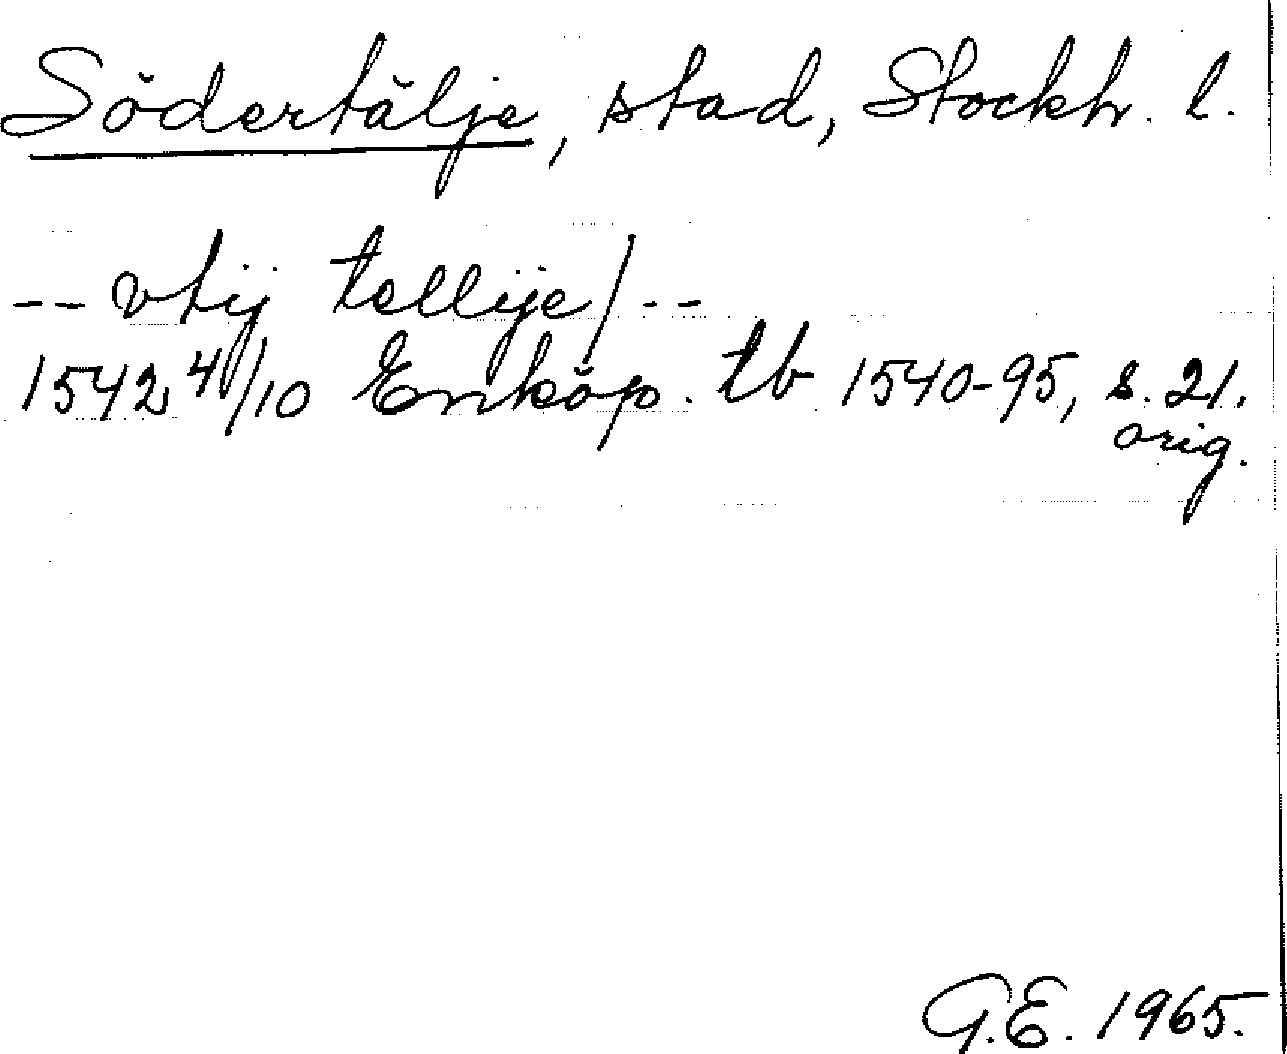 Södertälje, stad, Stockh. l.
-- vtij tellije/ --
1542 4/10 Enköp. tb 1540-95, s. 21.
orig.
G.E. 1965.